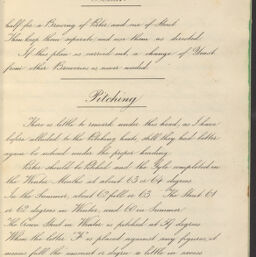 half for a Brewing of Bitter and one of Stout
Then keep them separate, and use them as directed
If this plan is carried out a change of Yeast
from other Breweries is never needed.
Pitching
There is little to remark under this head, as I have
before alluded to the Pitching heats, still they had better
again be noticed under the proper heading.
Bitter should be Pitched and the Gyle completed in
the Winter Months at about 63 or 64 degrees
In the Summer, about 62 full or 63 The Stout 61
or 62 degrees in Winter, and 60 in Summer
The Crown Stout in Winter is pitched at 59 degrees
When the letter "F" is placed against any figures, it
means full the amount or degree a little in excess